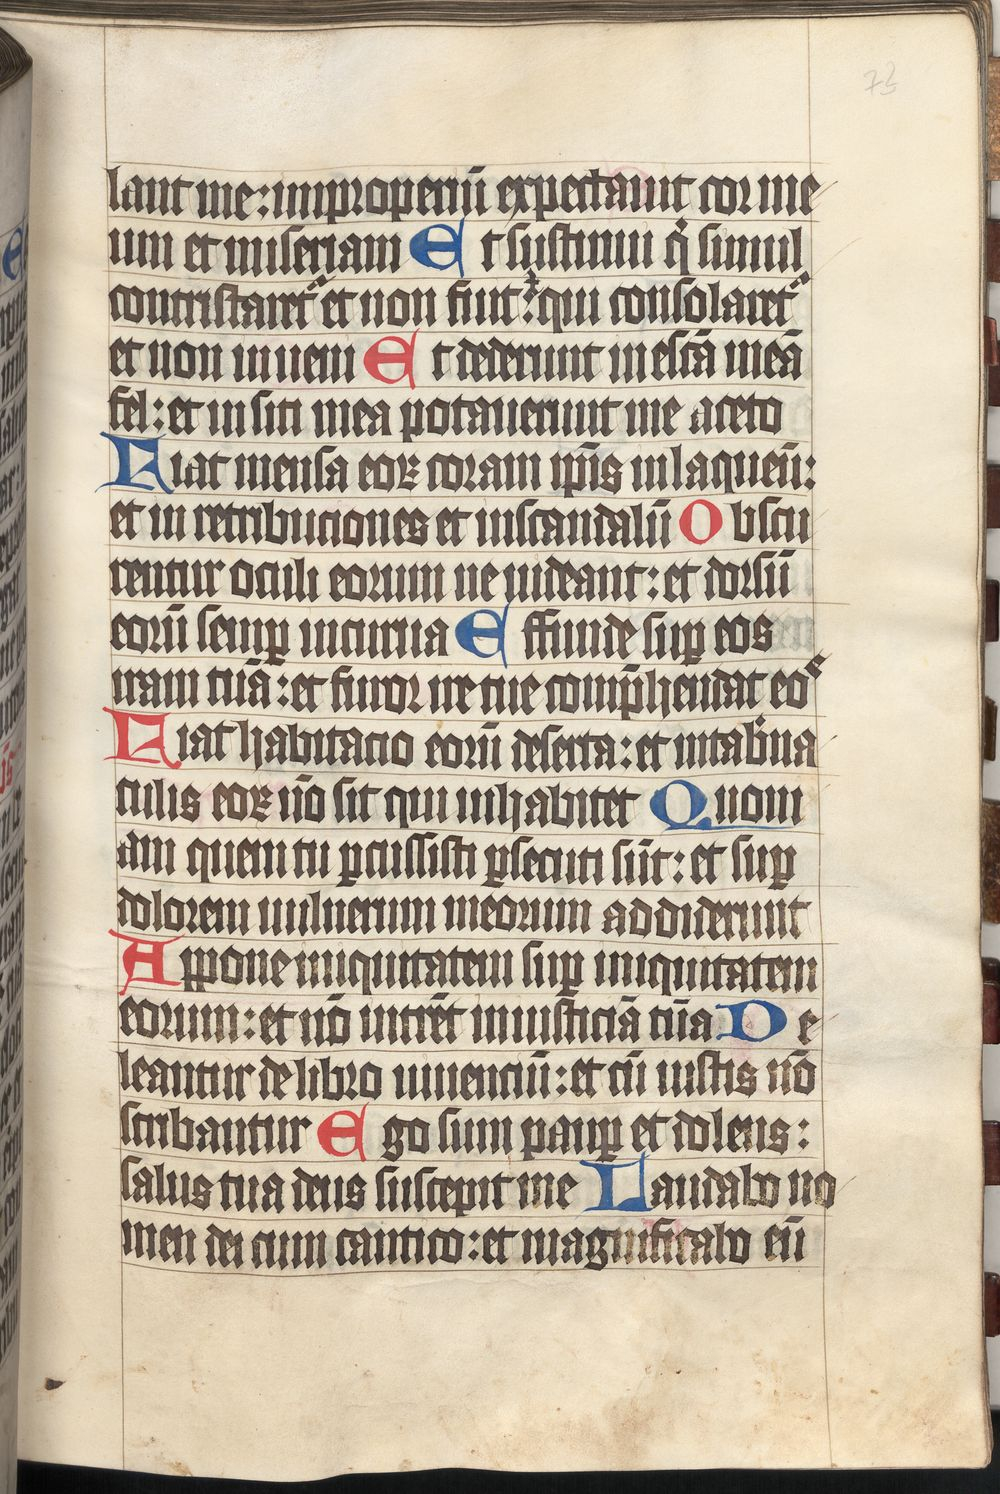 73
lant me: improperiū expectauit cor me
um et miseriam Et sustinui q̇ simul
contristaret᷑ et non fuit: qui consolaret᷑
et non inueni Et dederunt in escā meā
fel: et in siti mea potauerunt me aceto
Fiat mensa eoꝝ coram ip̄is in laqueū:
et in retribuciones et in scandalū Obscu
rentur oculi eorum ne videant: et dorsū
eorū semꝑ incurua Effunde suꝑ eos
iram tuā: et furor ire tue comp̄hendat eos
Fiat habitacio eorū deserta: et in tab̾na
culis eoꝝ nō sit qui inhabitet Quoni
am quem tu ꝑcussisti ꝑsecuti sūt: et suꝑ
dolorem vulnerum meorum addiderunt
Appone iniquitatem suꝑ iniquitatem
eorum: et nō intrēt in iusticiā tuā De
leantur de libro viuenciū: et cū iustis nō
scribantur Ego sum pauꝑ et dolens:
salus tua deus suscepit me Laudabo no
men dei cum cantico: et magnificabo eū